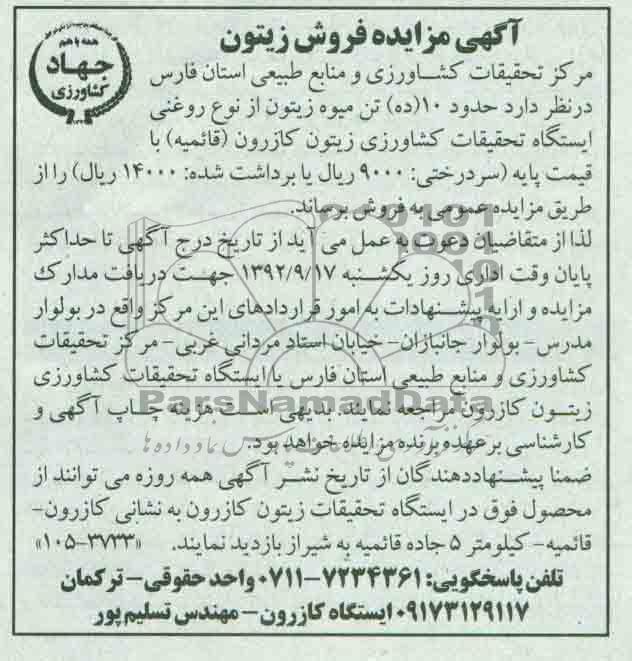 آگهی مزایده فروش زیتون
همه با هم
جهاد
کشاورزی
مرکز تحقیقات کشاورزی و منابع طبیعی استان فارس
درنظر دارد حدود ۱۰(ده) تن میوه زیتون از نوع روغنی
ایستگاه تحقیقات کشاورزی زیتون کازرون (قائمیه) با
قیمت پایه (سردرختی: ۹۰۰۰ ریال یا برداشت شده: ۱۴۰۰۰ ریال) را از
طریق مزایده عمومی به فروش برساند.
لذا از متقاضیان دعوت به عمل می آید از تاریخ درج آگهی تا حداکثر
پایان وقت اداری روز یکشنبه ۱۳۹۲/۹/۱۷ جهت دریافت مدارک
مزایده و ارایه پیشنهادات به امور قراردادهای این مرکز واقع در بولوار
مدرس- بولوار جانبازان- خیابان استاد مردانی غربی- مرکز تحقیقات
کشاورزی و منابع طبیعی استان فارس یا ایستگاه تحقیقات کشاورزی
زیتون کازرون مراجعه نمایند. بدیهی است هزینه چاپ آگهی و
کارشناسی بر عهده برنده مزایده خواهد بود.
ضمنا پیشنهاددهندگان از تاریخ نشر آگهی همه روزه می توانند از
محصول فوق در ایستگاه تحقیقات زیتون کازرون به نشانی کازرون-
قائمیه- کیلومتر ۵ جاده قائمیه به شیراز بازدید نمایند. «۳۷۳۳-۱۰۵»
تلفن پاسخگویی: ۷۲۳۴۳۶۱-۰۷۱۱ واحد حقوقی- ترکمان
۰۹۱۷۳۱۲۹۱۱۷ ایستگاه کازرون- مهندس تسلیم پور
ParsNamadData